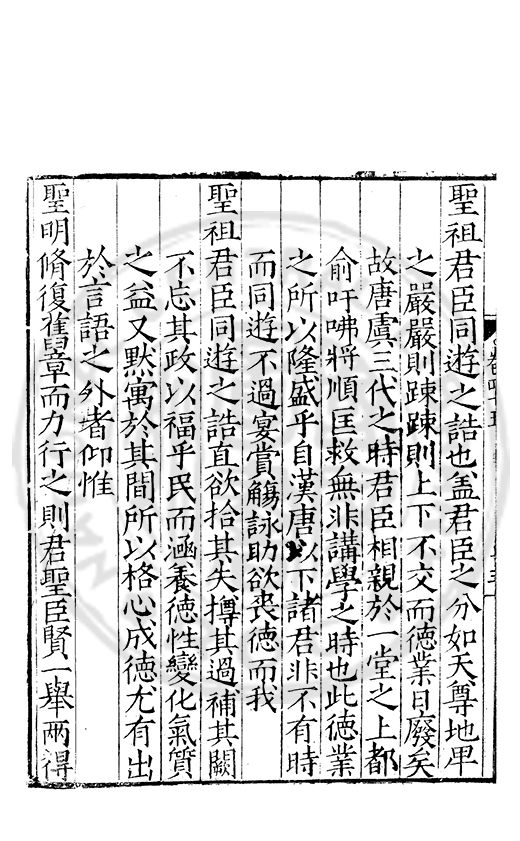 聖祖君臣同遊之誥也盖君臣之分如天尊地卑
之嚴嚴則踈踈則上下不交而徳業日廢矣
故唐虞三代之時君臣相親於一堂之上都
俞吁咈將順匡救無非講學之時也此徳業
之所以隆盛乎自漢唐以下諸君非不有時
而同遊不過宴賞觴詠助欲喪徳而我
聖祖君臣同遊之誥直欲拾其失撙其過補其闕
不忘其政以福乎民而涵養徳性變化氣質
之益又默寓於其間所以格心成徳尤有出
於言語之外者仰惟
聖明脩復舊章而力行之則君聖臣賢一舉兩得